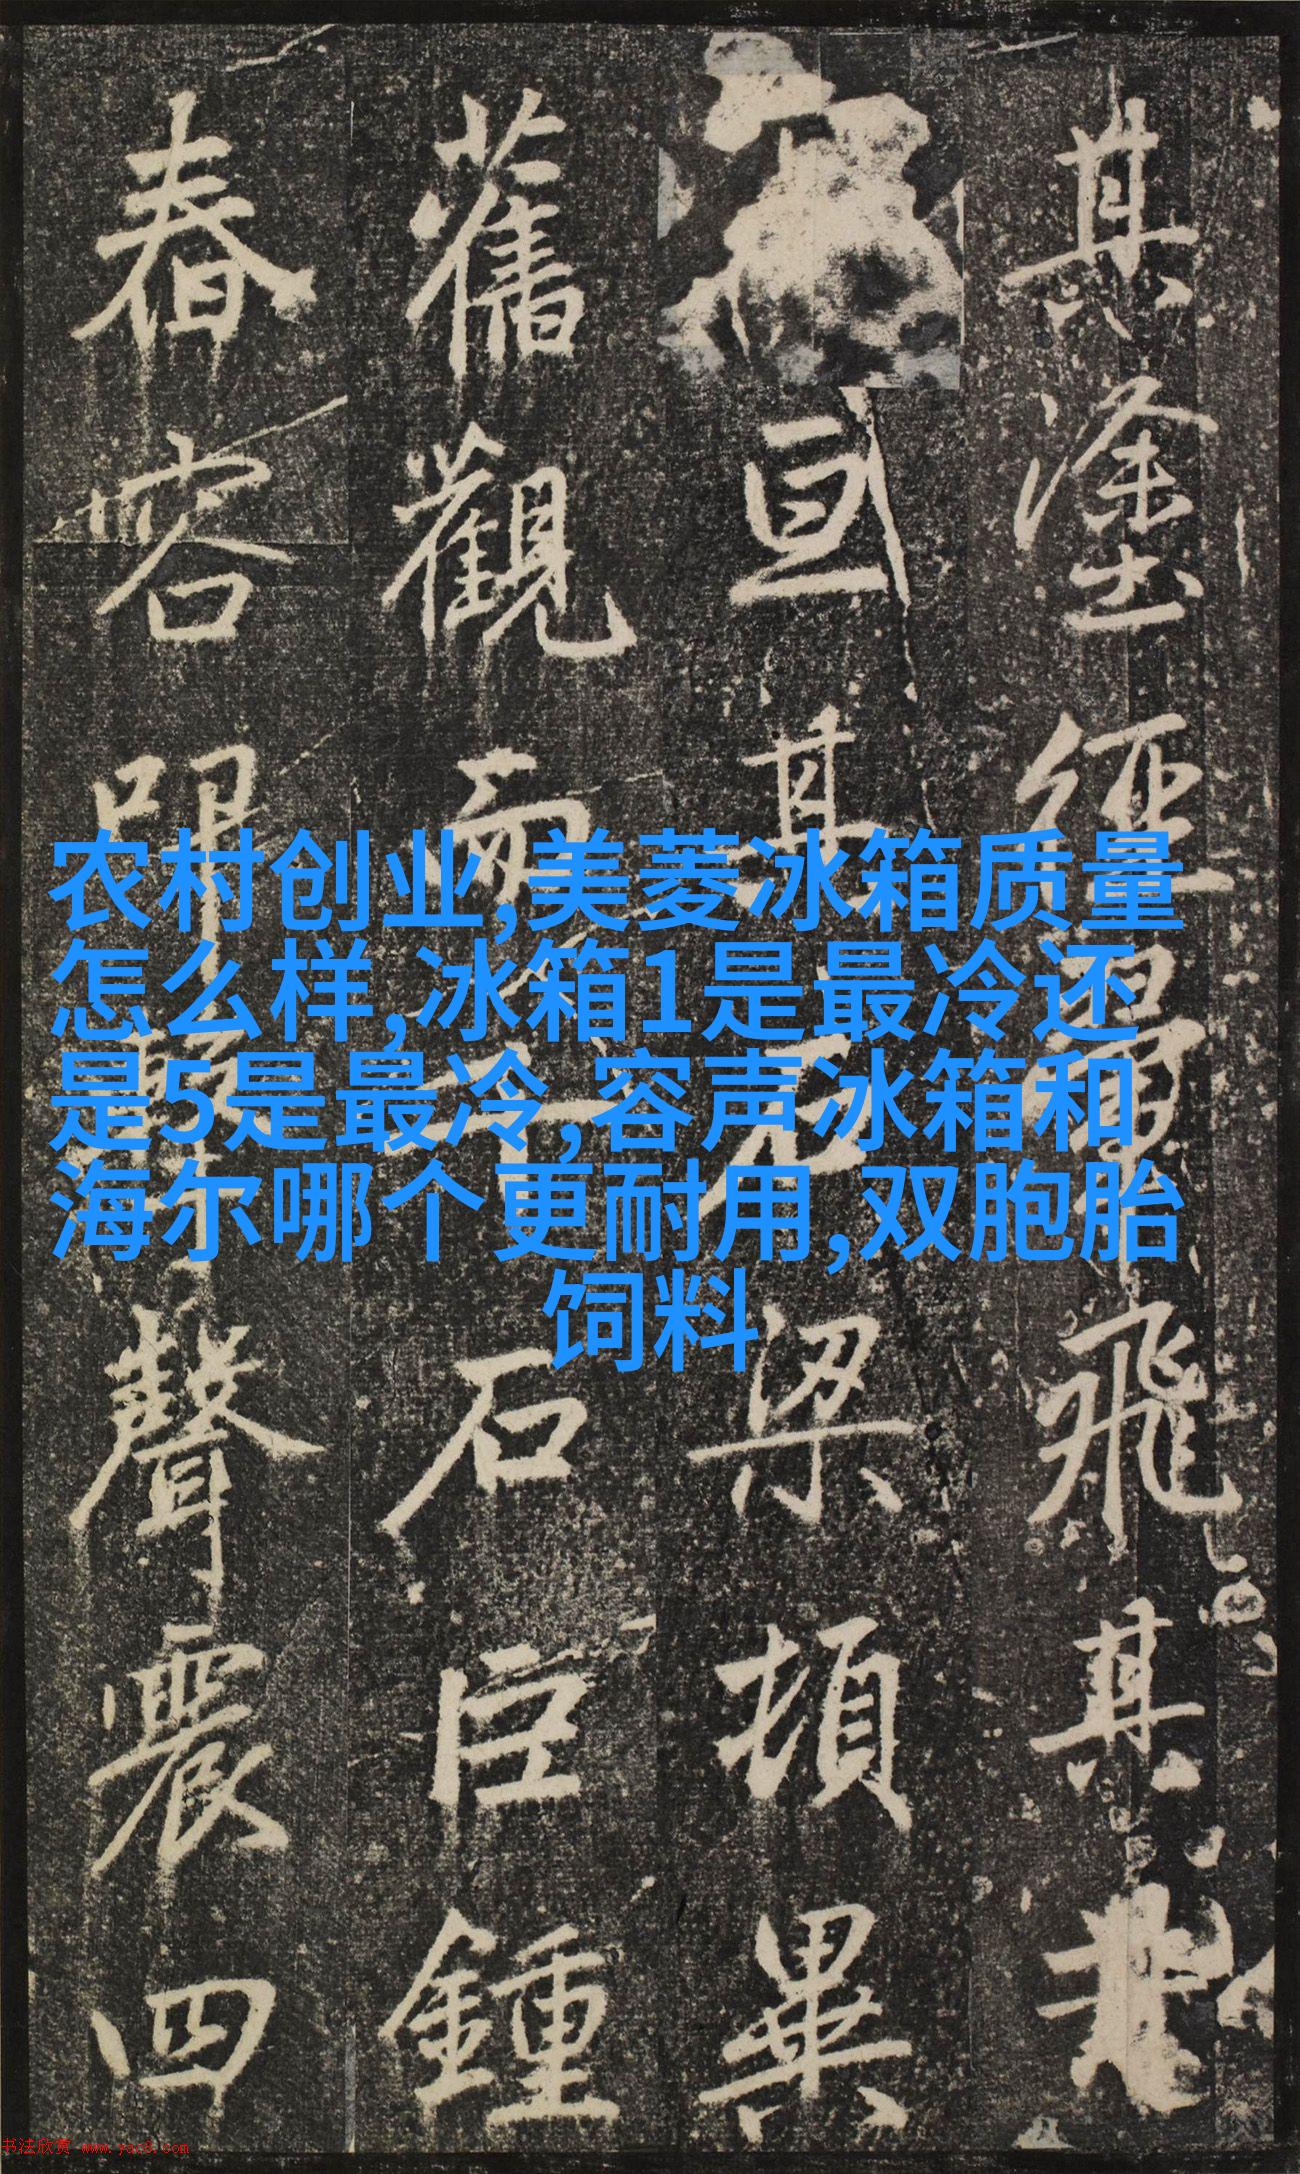 农村创业,美菱冰箱质量
怎么样,冰箱1是最冷还
是5是最冷,容声冰箱和
海尔哪个更耐用,双胞胎
饲料
其塗經飛其
亘其梁頓畢
舊觀而石巨鍾
春容聲震四
书法欣赏 www.yac8.com